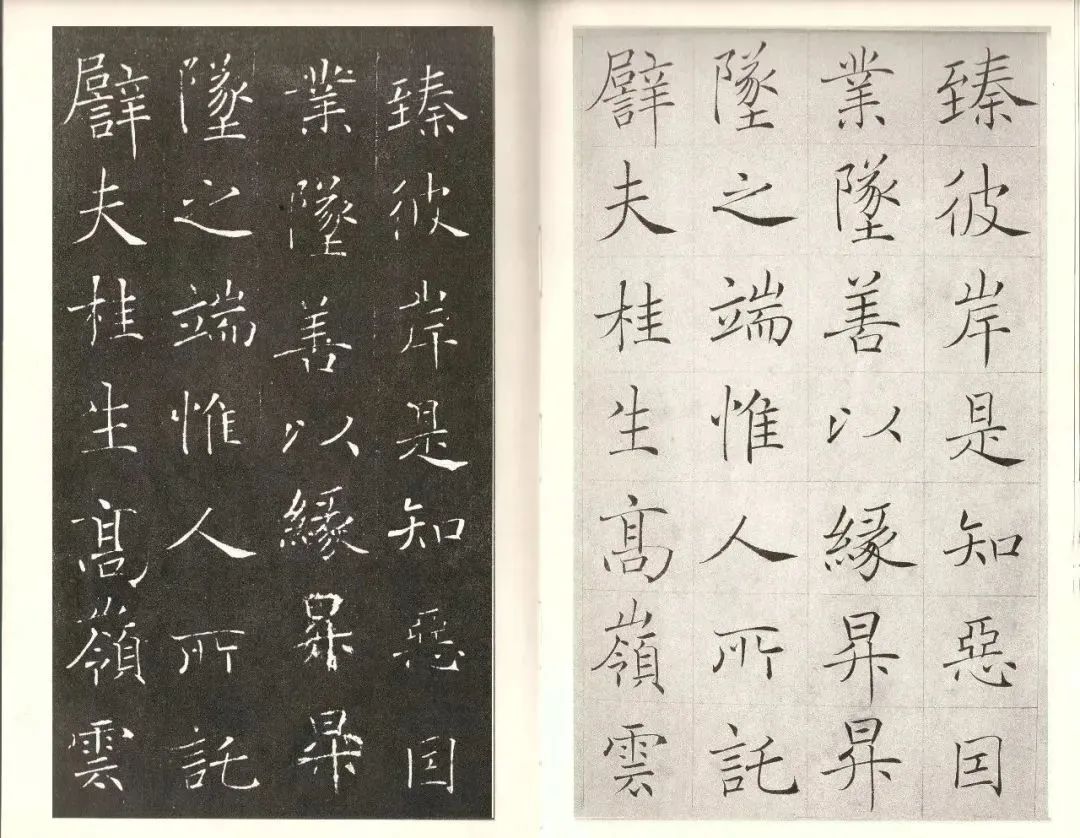 臻彼岸是知惡囙
業墜善以緣昇昇
墜之端惟人所託
譬夫桂生髙嶺雲
臻彼岸是知惡囙
業墜善以緣昇昇
墜之端惟人所託
譬夫桂生髙嶺雲